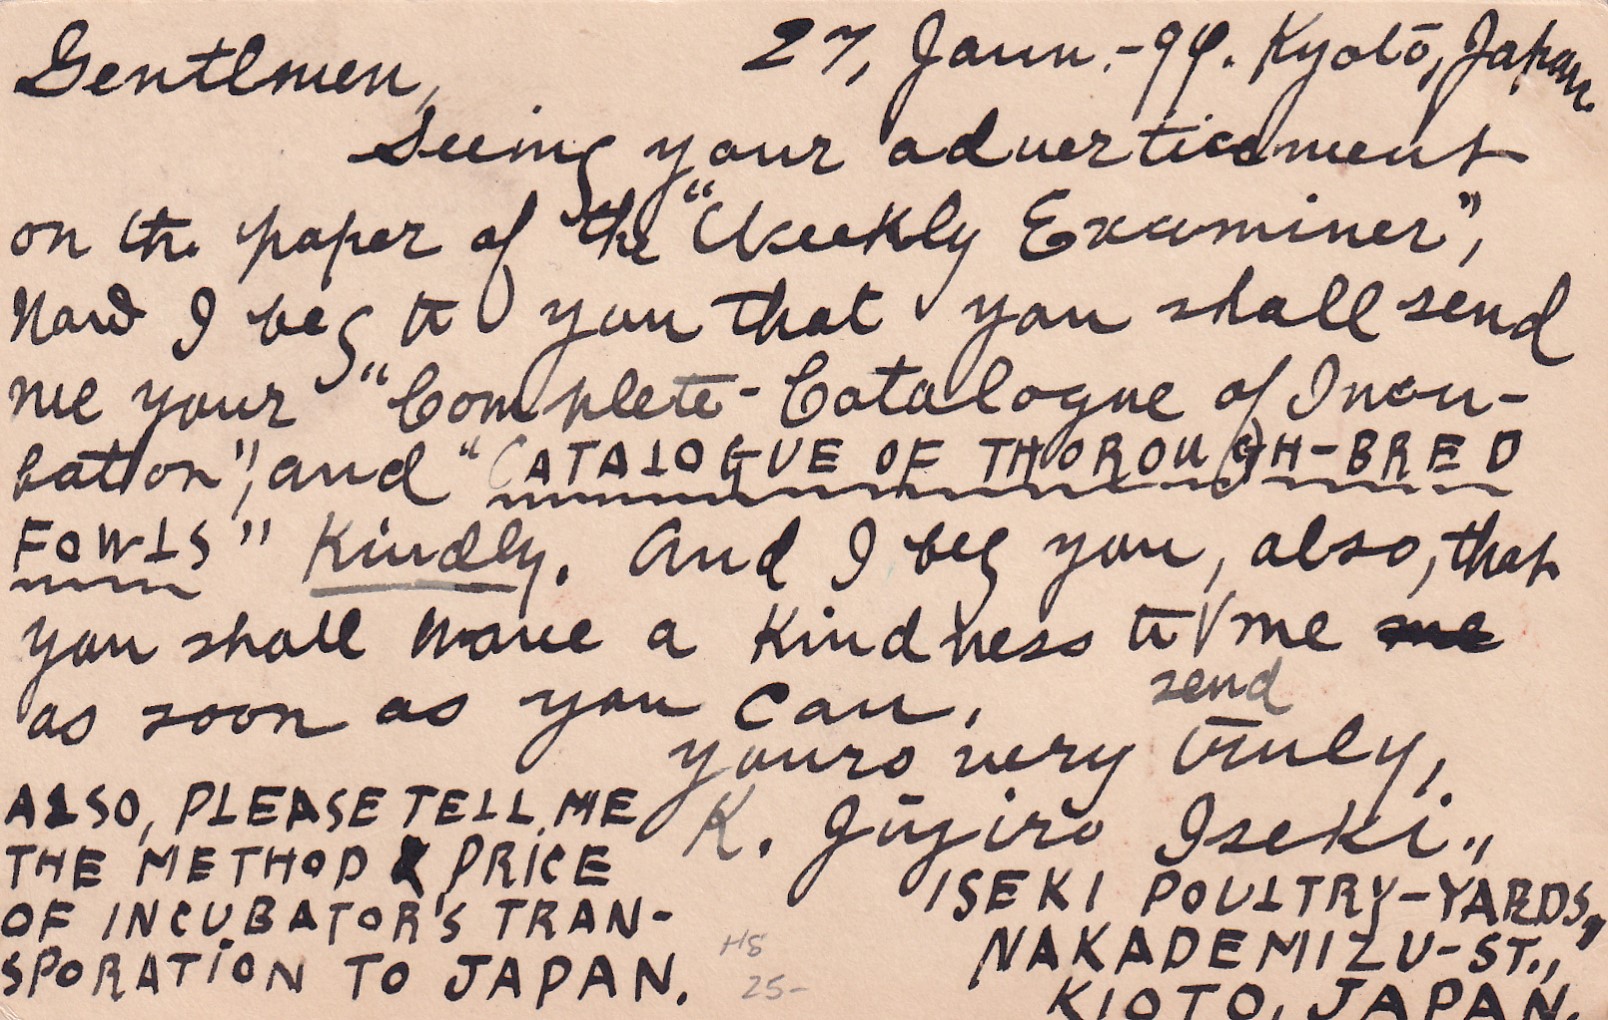 27, Jann.-99. Kyotō, Japan.
Gentlmen,
Seeing your adverticement
on the paper of the "Weekly Examiner",
Now I beg to you that you shall send
me your "Complete-Catalogue of Incu-
bation", and "CATALOGUE OF THOROUGH-BRED
FOWLS" Kindly. And I beg you, also, that
you shall have a kindness to send me
as soon as you can.
yours very truly,
K. Jūjirō Iseki.,
ISEKI POULTRY-YARDS,
NAKADEMIZU-ST.,
KIOTO, JAPAN.
ALSO, PLEASE TELL ME
THE METHOD & PRICE
OF INCUBATOR'S TRAN-
SPORATION TO JAPAN.
HS
25-